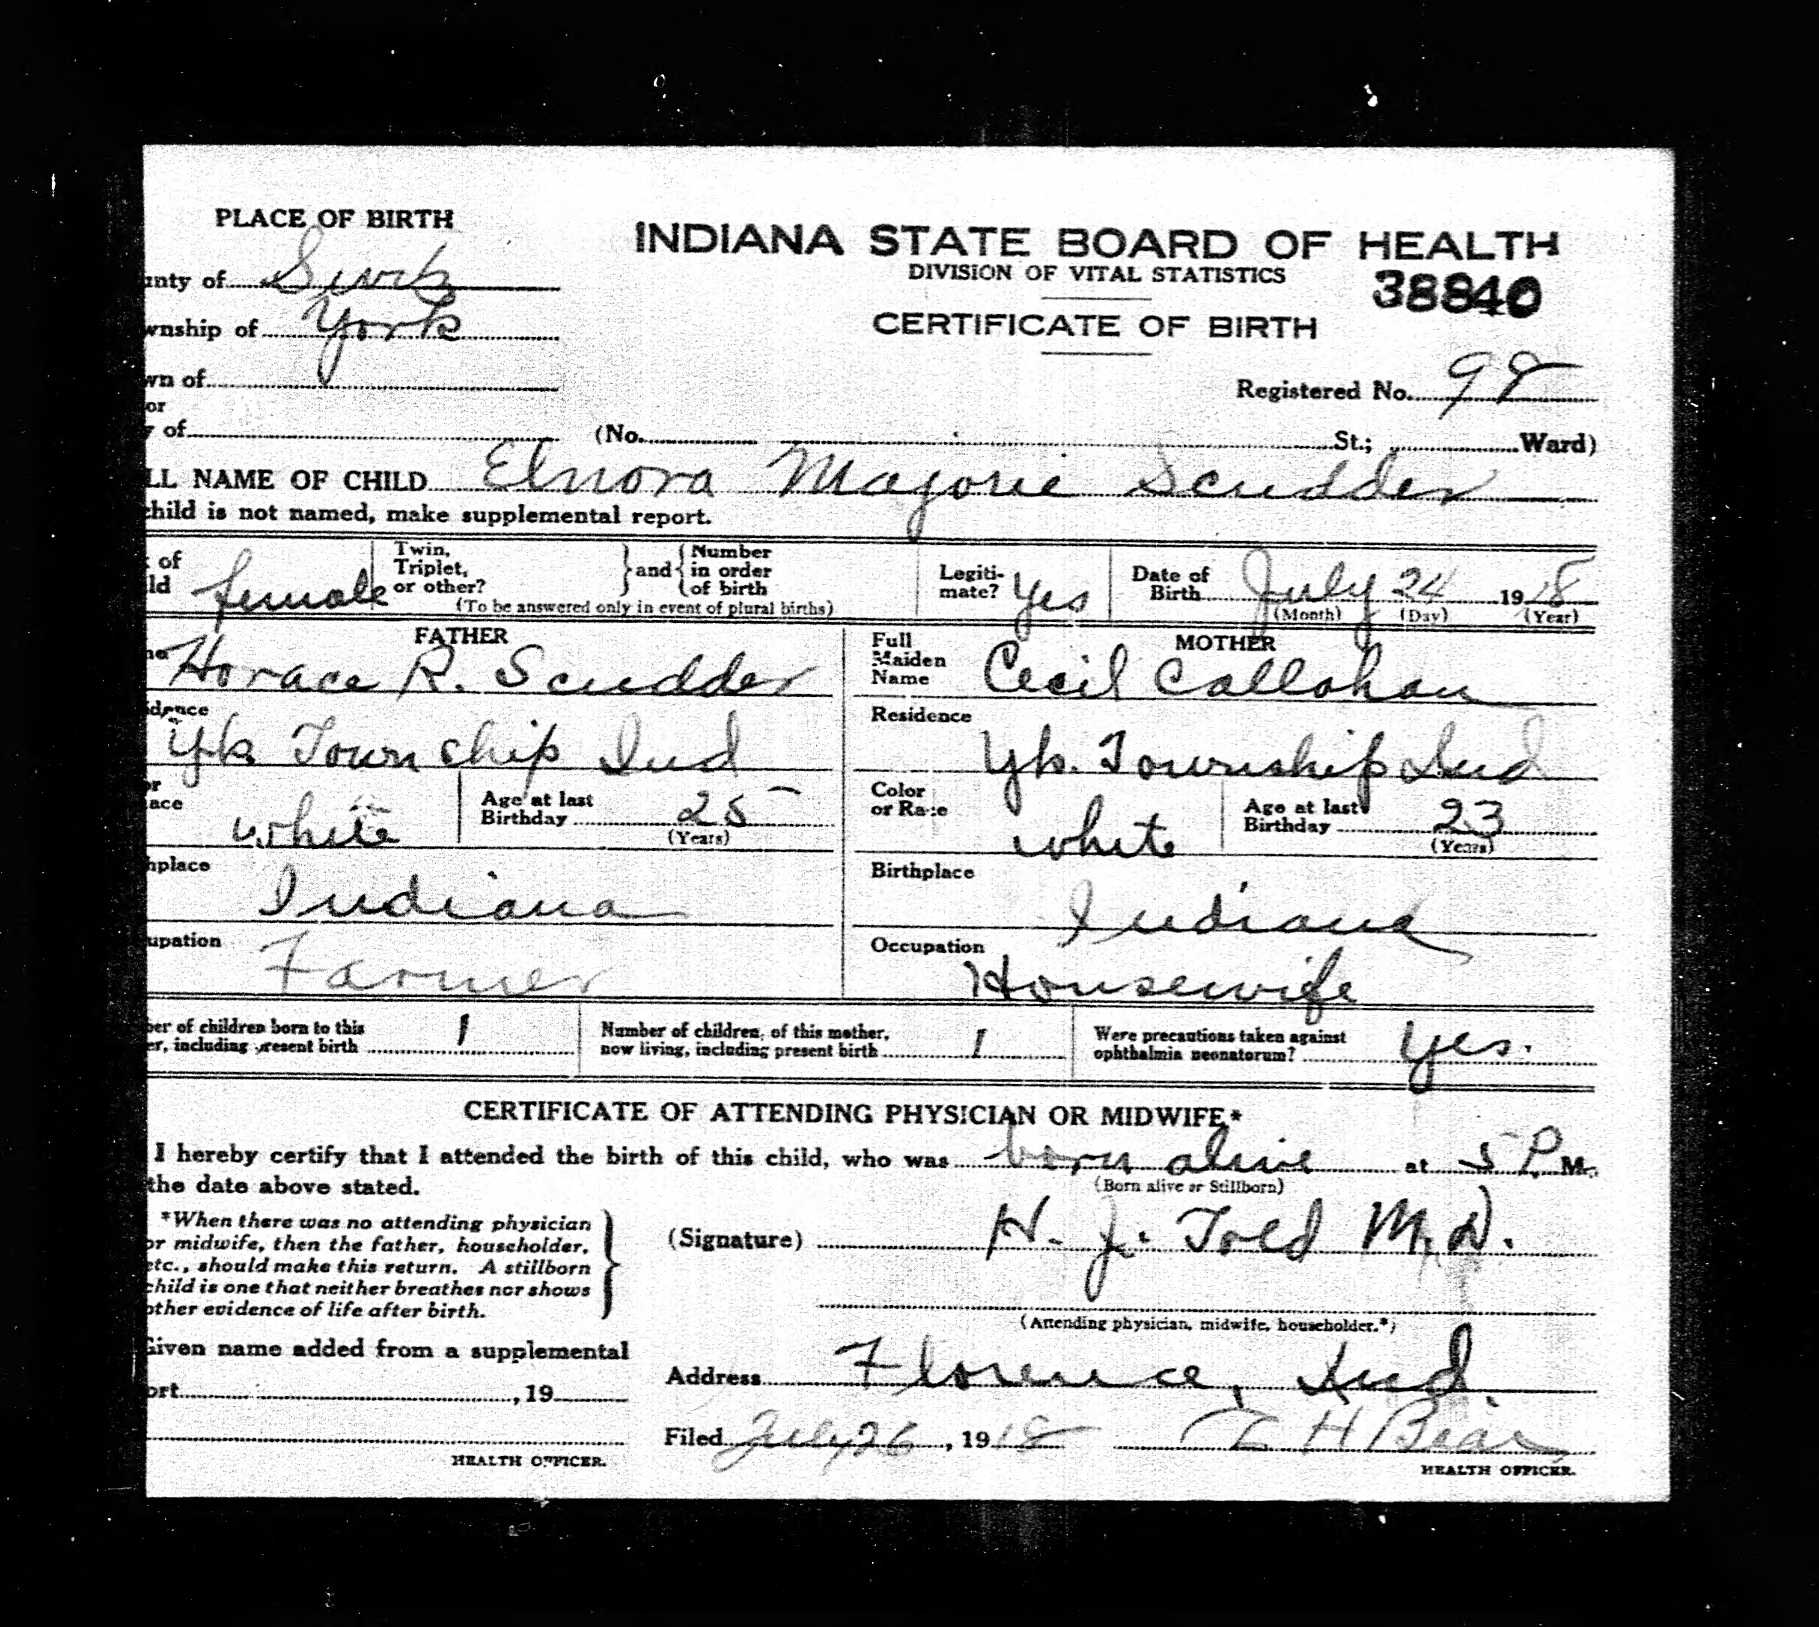 PLACE OF BIRTH
INDIANA STATE BOARD OF HEALTH
DIVISION OF VITAL STATISTICS
38840
CERTIFICATE OF BIRTH
unty of
wnship of York
wn of
or
y of
Registered No. 98
(No. St.; Ward)
LL NAME OF CHILD Elnora Marjorie Scudder
child is not named, make supplemental report.
of
ld female
Twin,
Triplet,
or other?
and
Number
in order
of birth
(To be answered only in event of plural births)
Legiti-
mate? Yes
Date of
Birth July 24 1918
(Month) (Day) (Year)
FATHER
Horace R. Scudder
MOTHER
Full
Maiden
Name Cecil Callahan
idence
Yk Township Ind
Residence
Yk. Township Ind
or
ace white
Age at last
Birthday 25
(Years)
Color
or Race white
Age at last
Birthday 23
(Years)
hplace
Indiana
Birthplace
Indiana
upation
Farmer
Occupation
Housewife
ber of children born to this
er, including present birth 1
Number of children, of this mother,
now living, including present birth 1
Were precautions taken against
ophthalmia neonatorum? Yes.
CERTIFICATE OF ATTENDING PHYSICIAN OR MIDWIFE*
I hereby certify that I attended the birth of this child, who was born alive at 5 P. M.
(Born alive or Stillborn)
the date above stated.
*When there was no attending physician
or midwife, then the father, householder,
etc., should make this return. A stillborn
child is one that neither breathes nor shows
other evidence of life after birth.
(Signature) H. J. M.D.
(Attending physician, midwife, householder.*)
Given name added from a supplemental
ort ,19
HEALTH OFFICER.
Address Florence, Ind.
Filed July 26, 1918 H Bear
HEALTH OFFICER.